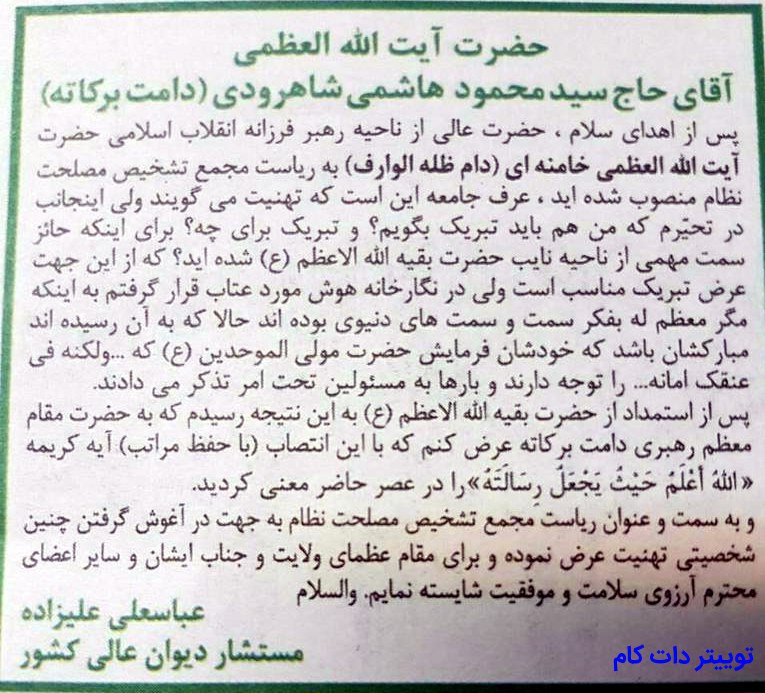 حضرت آیت الله العظمی
آقای حاج سید محمود هاشمی شاهرودی (دامت برکاته)
پس از اهدای سلام ، حضرت عالی از ناحیه رهبر فرزانه انقلاب اسلامی حضرت
آیت الله العظمی خامنه ای (دام ظله الوارف) به ریاست مجمع تشخیص مصلحت
نظام منصوب شده اید ، عرف جامعه این است که تهنیت می گویند ولی اینجانب
در تحیّرم که من هم باید تبریک بگویم؟ و تبریک برای چه؟ برای اینکه حائز
سمت مهمی از ناحیه نایب حضرت بقیه الله الاعظم (ع) شده اید؟ که از این جهت
عرض تبریک مناسب است ولی در نگارخانه هوش مورد عتاب قرار گرفتم به اینکه
مگر معظم له بفکر سمت و سمت های دنیوی بوده اند حالا که به آن رسیده اند
مبارکشان باشد که خودشان فرمایش حضرت مولی الموحدین (ع) که ...ولکنه فی
عنقک امانه... را توجه دارند و بارها به مسئولین تحت امر تذکر می دادند.
پس از استمداد از حضرت بقیه الله الاعظم (ع) به این نتیجه رسیدم که به حضرت مقام
معظم رهبری دامت برکاته عرض کنم که با این انتصاب (با حفظ مراتب) آیه کریمه
«اللهُ أَعْلَمُ حَیْثُ یَجْعَلُ رِسَالَتَهُ» را در عصر حاضر معنی کردید.
و به سمت و عنوان ریاست مجمع تشخیص مصلحت نظام به جهت در آغوش گرفتن چنین
شخصیتی تهنیت عرض نموده و برای مقام عظمای ولایت و جناب ایشان و سایر اعضای
محترم آرزوی سلامت و موفقیت شایسته نمایم. والسلام
عباسعلی علیزاده
مستشار دیوان عالی کشور
توییتر دات کام